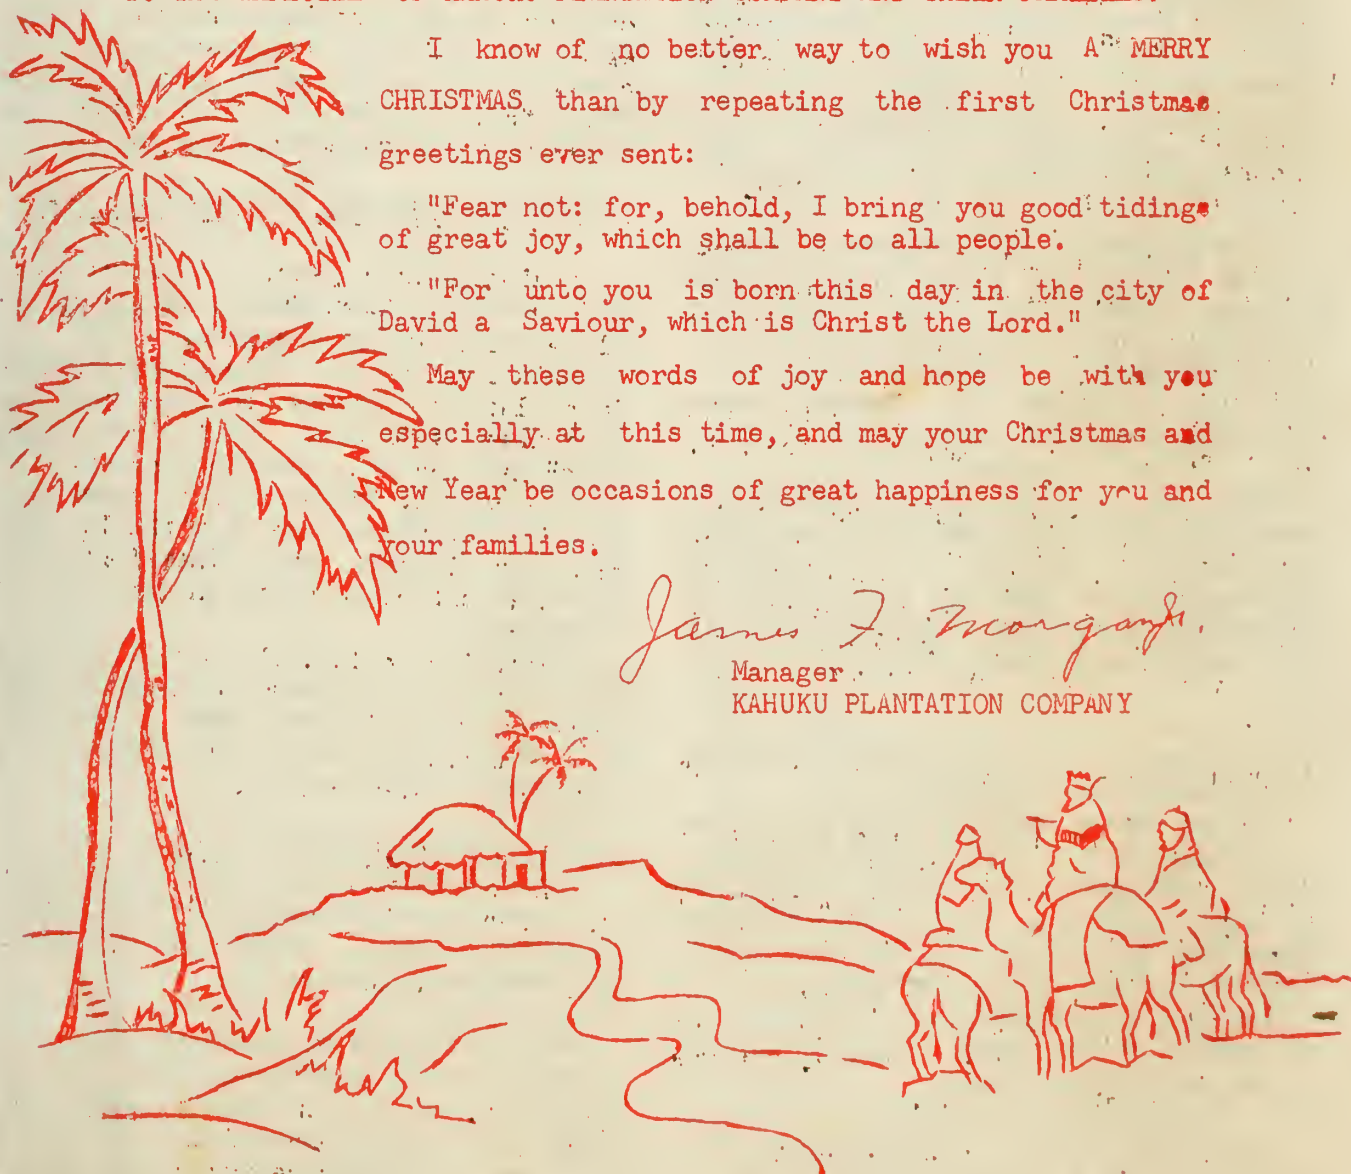 I know of no better way to wish you A MERRY
CHRISTMAS than by repeating the first Christmas
greetings ever sent:
"Fear not: for, behold, I bring you good tidings
of great joy, which shall be to all people.
"For unto you is born this day in the city of
David a Saviour, which is Christ the Lord."
May these words of joy and hope be with you
especially at this time, and may your Christmas and
New Year be occasions of great happiness for you and
your families.
James F. Morgan Jr.
Manager
KAHUKU PLANTATION COMPANY